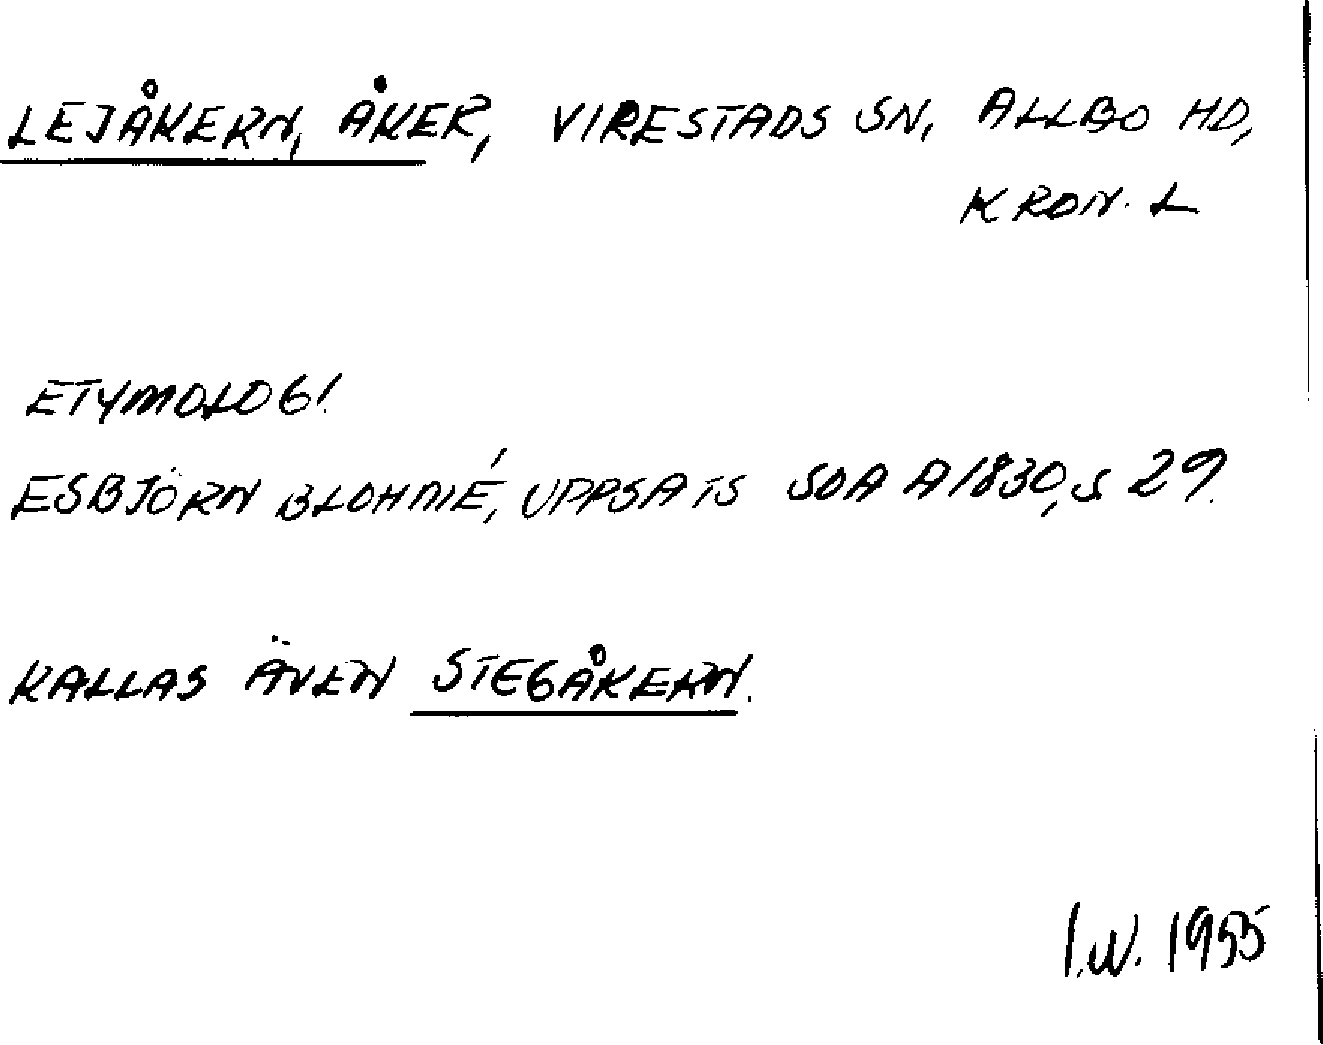 LEJÅKERN, ÅKER, VIRESTADS SN, ALLBO HD,
KRON. L
ETYMOLOGI.
ESBJÖRN BLOHMÉ, UPPSATS SOA A1830, S 29.
KALLAS ÄVEN STEGÅKERN.
I.W. 1955